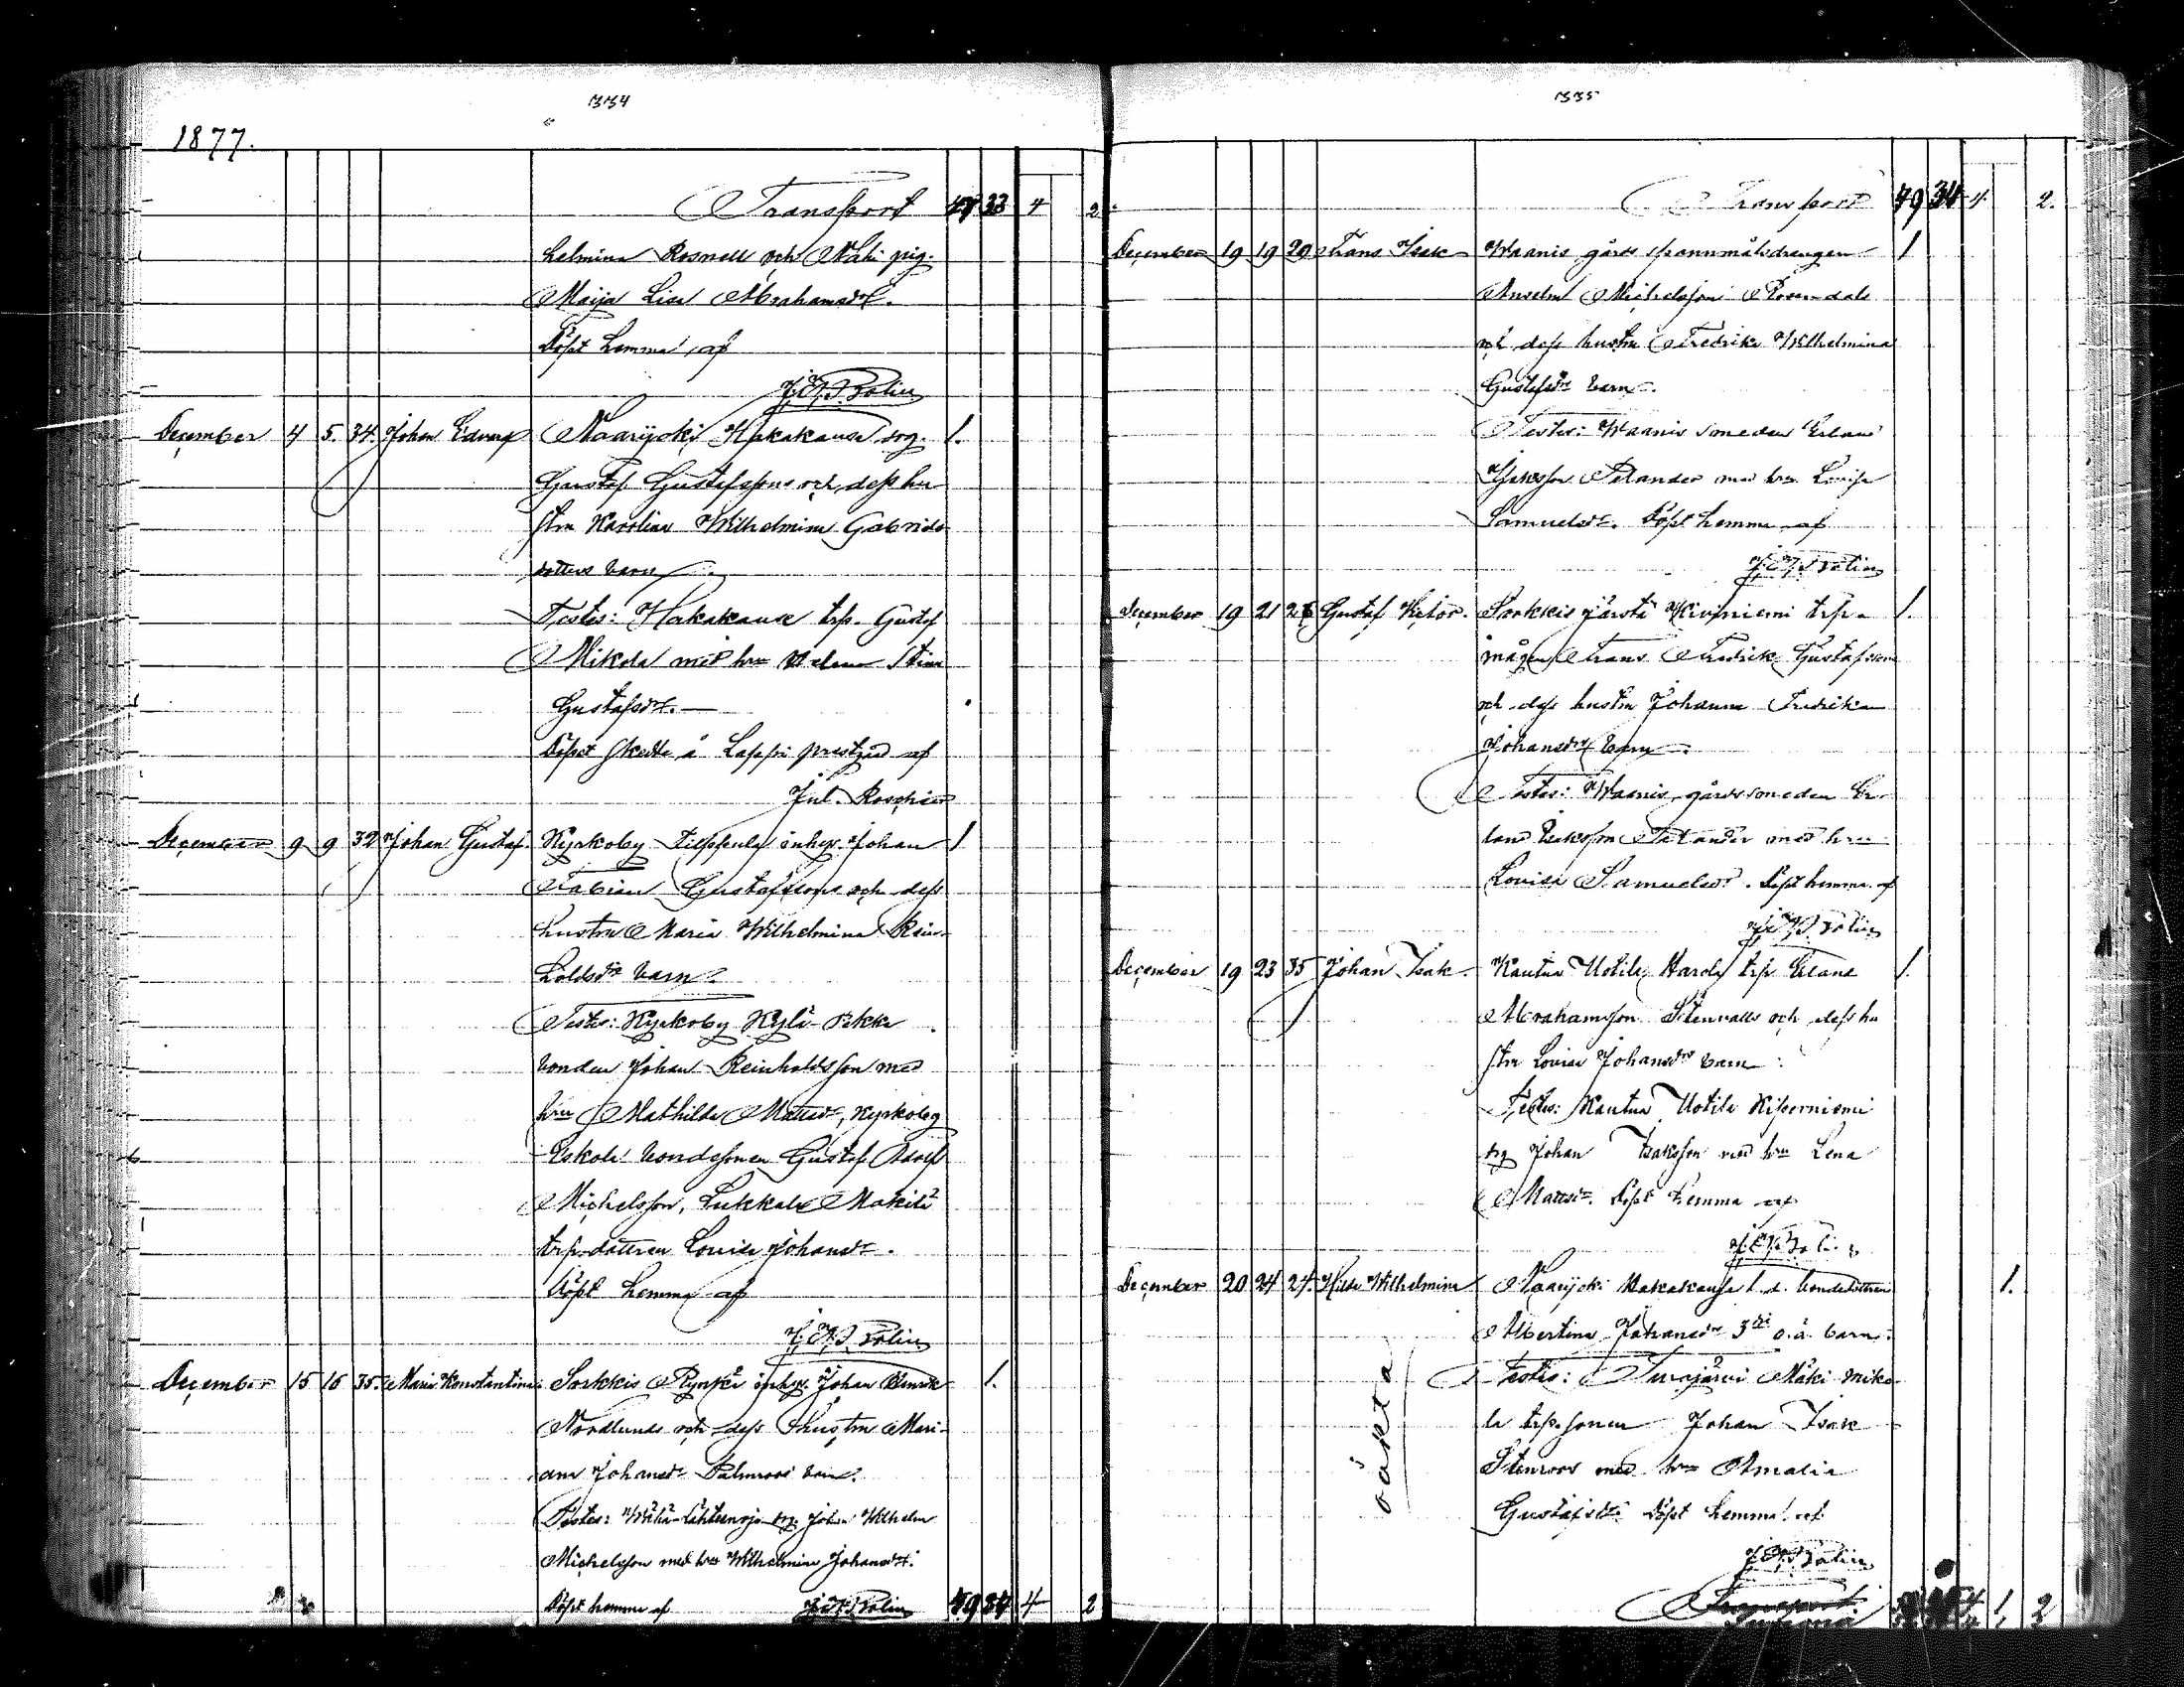 334
1877.
Transport 47 33 4 2
helmina Rosnell och Wähi pig.
Maija Lisa Abrahamsdr.
Döpt hemma af
J. A. S. Bolin
December 4 5. 34. Johan Edvard Naarijoki Hakakause sog. 1.
Gustaf Gustafssons och dess hu
stru Karolina Wilhelmina Gabriels
dotters barn.
Testes: Hakakause trp. Gustaf
Mikola med hru Helena Stina
Gustafsdr.
Döpet skedde å Lappi prestgård af
Jul. Roschier
December 9 9 32 Johan Gustaf. Kyrkoby Tieppula inhys. Johan 1
Fabian Gustafssons och dess
hustru Maria Wilhelmina Rein-
holdsdr barn.
Testes: Kyrkoby Kylä-Pekka
bonden Johan Reinholdsson med
hru Mathilda Mattsdr, Kyrkoby
Eskola bondesonen Gustaf Adolf
Michelsson, Lukkala Mäkilä
trp. dottren Lovisa Johansdr.
Döpt hemma af
J. A. S. Bolin
December 15 16 35. Maria Konstantina. Sorkkis inhys. Johan Henrik 1.
Nordlunds och dess hustru Mari-
ana Johansdr Palmroos barn.
Testes: Johan Wilhelm
Michelsson med hru Wilhelmina Johansdr.
Döpt hemma af J. A. S. Bolin 49 34 4 2
335
Transport 49 34 4 2.
December 19 19 29 Frans Isak Waanis gårds spannmålsdrängen 1
Anselm Michelsson Rosendals
och dess hustru Fredrika Wilhelmina
Gustafsdr barn.
Testes: Waanis smeden Erland
Isaksson Telander med hru Lovisa
Samuelsdr. Döpt hemma af
J. A. S. Bolin
December 19 21 26 Gustaf Viktor. Sorkkis Järstä Kivniemi trp. 1.
mågen Frans Fredrik Gustafsson
och dess hustru Johanna Fredrika
Johansdr barn.
Testes: Waanis gårdssmeden Er-
land Isaksson Telander med hru
Lovisa Samuelsdr. Döpt hemma af
J. A. S. Bolin
December 19 23 35 Johan Isak Kauttua Uotila trp Erland 1.
Abrahamsson Stenvalls och dess hu
stru Lovisa Johansdr barn.
Testes: Kauttua Uotila
sog Johan Isaksson med hru Lena
Mattsdr. Döpt hemma af
J. A. S. Bolin
December 20 24 24. Hilda Wilhelmina Naarijoki Hakakause l. d. bondedottren 1.
Albertina Johansdr 3dje o.ä. barn.
Testes: Turajärvi Mäki Miko-
la trp. sonen Johan Isak
Stenroos med hru Amalia
Gustafsdr. Döpt hemma af
J. A. S. Bolin
oäkta
Transport
Summa 4 1 2